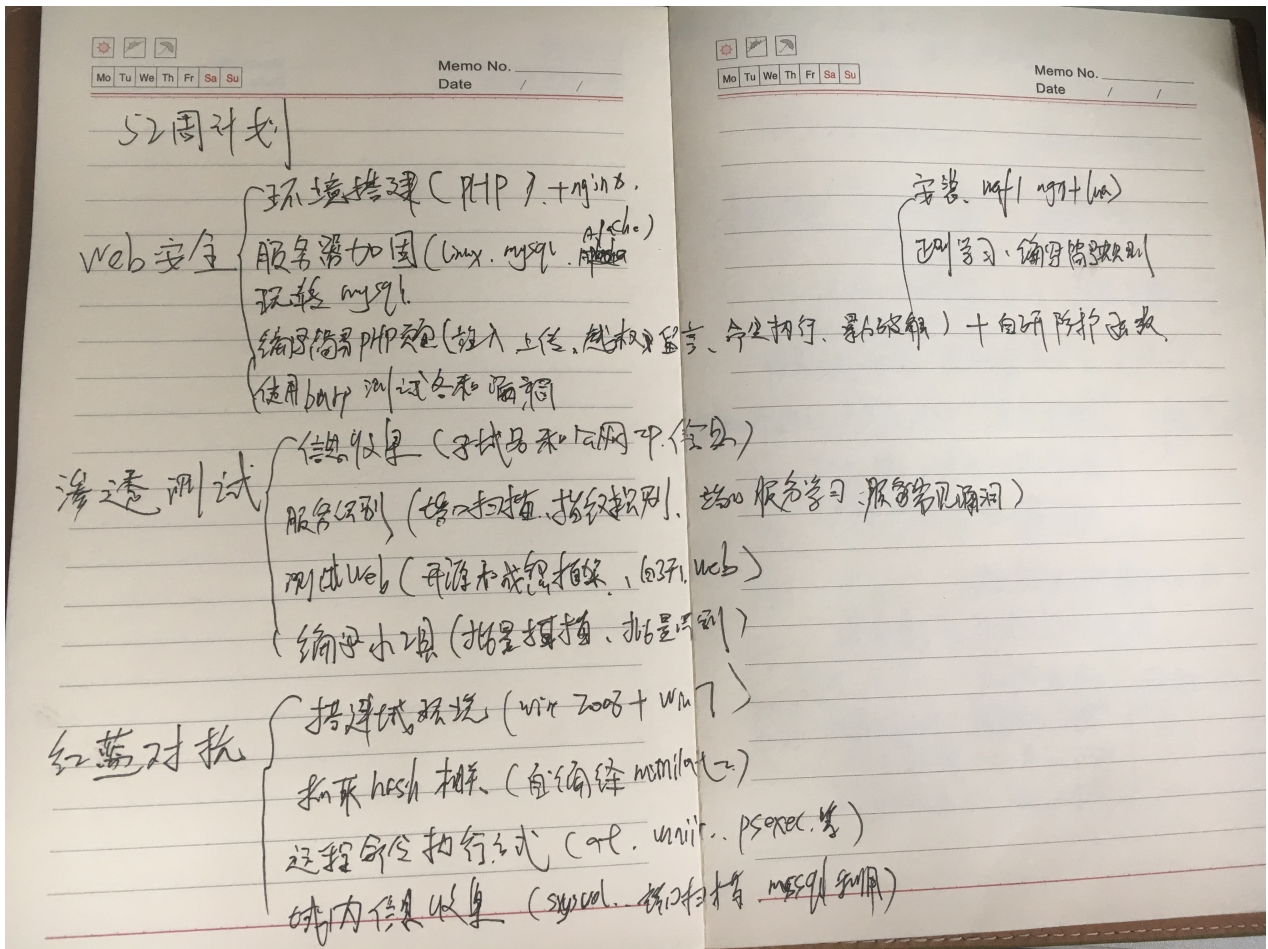 Mo Tu We Th Fr Sa Su
Memo No.
Date / /
52周计划
Web安全
环境搭建(PHP)+nginx.
服务器加固(linux. mysql. Apache)
玩转mysql.
编写简易PHP页面(注入 上传、越权 留言、命令执行、暴力破解)+自研防护函数
使用burp测试各种漏洞
渗透测试
信息收集(子域名和公网IP.信息)
服务识别(端口扫描、指纹识别、端口服务学习、服务常见漏洞)
测试Web(开源 扫描 web)
编写小工具(批量扫描、批量识别)
红蓝对抗
搭建域环境(win 2008+win7)
抓取hash相关(自编译mimikatz)
远程命令执行方式(at. wmi. psexec.等)
域内信息收集(sysvol. 端口扫描 mssql利用)
Mo Tu We Th Fr Sa Su
Memo No.
Date / /
安装 ngx+lua)
正则学习.编写简单规则